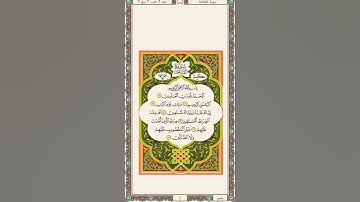 سورة الفاتحة
سُورَةُ الْفَاتِحَةِ
بِسْمِ اللَّهِ الرَّحْمَٰنِ الرَّحِيمِ ۝
الْحَمْدُ لِلَّهِ رَبِّ الْعَالَمِينَ ۝
الرَّحْمَٰنِ الرَّحِيمِ ۝ مَالِكِ يَوْمِ الدِّينِ ۝
إِيَّاكَ نَعْبُدُ وَإِيَّاكَ نَسْتَعِينُ ۝ اهْدِنَا
الصِّرَاطَ الْمُسْتَقِيمَ ۝ صِرَاطَ الَّذِينَ أَنْعَمْتَ
عَلَيْهِمْ غَيْرِ الْمَغْضُوبِ عَلَيْهِمْ
وَلَا الضَّالِّينَ ۝